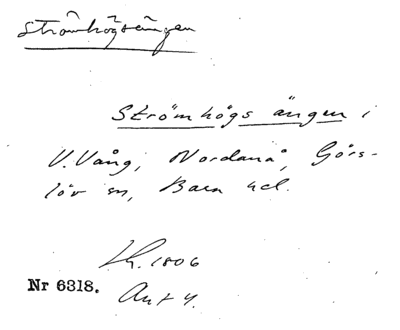 Strömhögsängen
Strömhögs ängen i
V. Vång, Nordanå, Görs-
löv sn, Bara hd.
1806
Nr 6318. Akt 4.